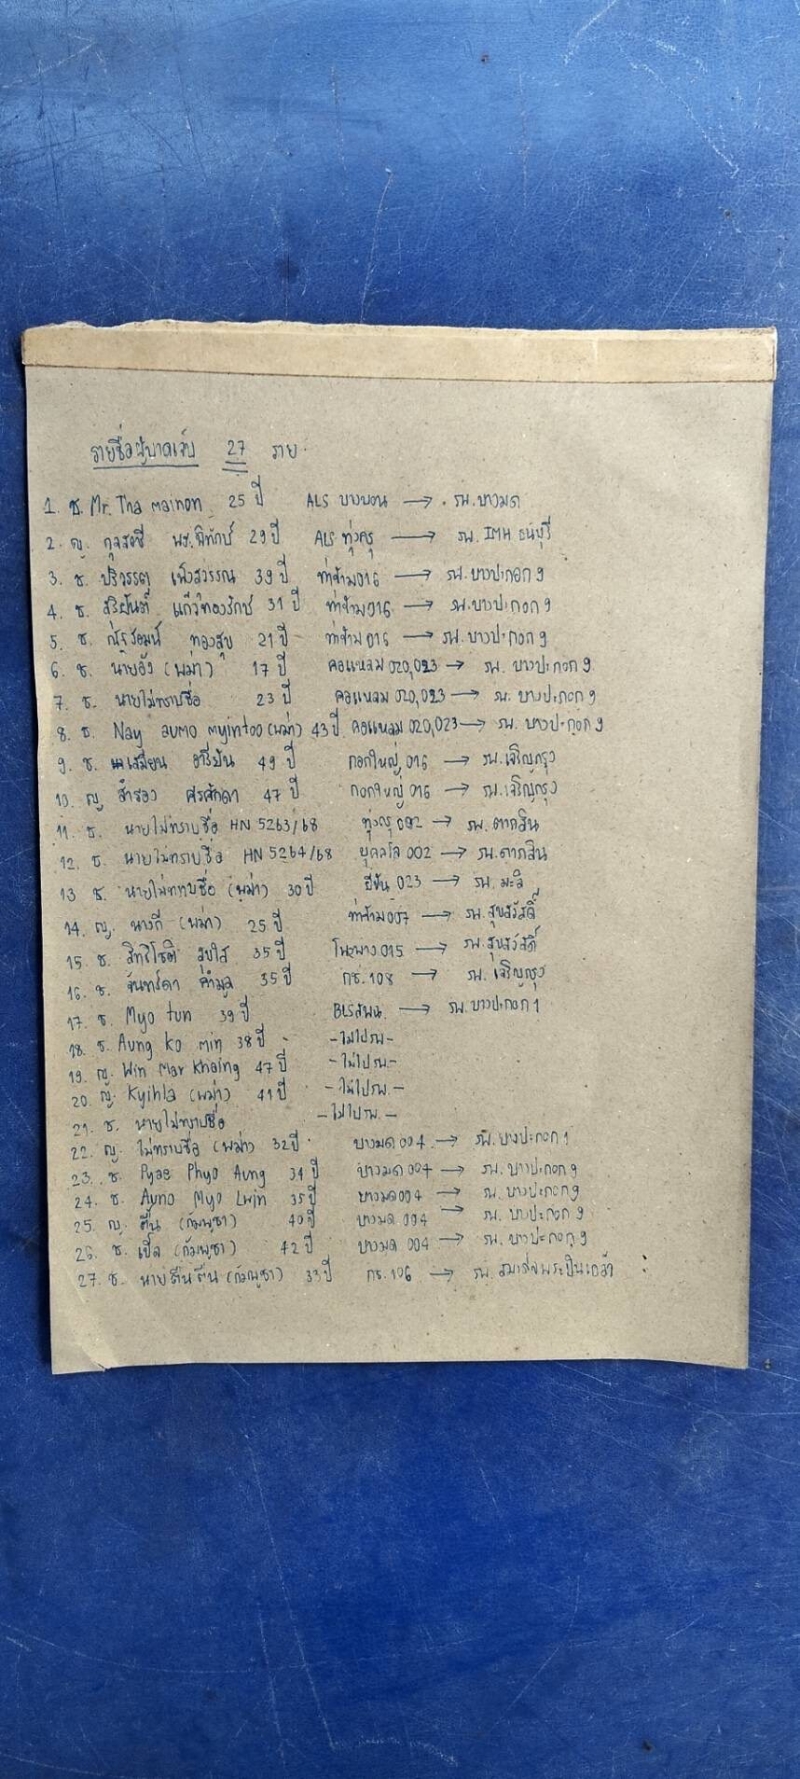 รายชื่อผู้บาดเจ็บ 27 ราย
1. ช. Mr. Tha mainon 25 ปี ALS บางบอน → รพ.บางมด
2. ญ. พร.พิทักษ์ 29 ปี ALS ทุ่งครุ → รพ. IMH ธนบุรี
3. ช. ปริวรรต เพ็งสุวรรณ 39 ปี ท่าข้าม 016 → รพ.บางปะกอก 9
4. ช. แก้วทองรักษ์ 31 ปี ท่าข้าม 016 → รพ.บางปะกอก 9
5. ช. ทองสุข 21 ปี ท่าข้าม 016 → รพ.บางปะกอก 9
6. ช. นายอัง (พม่า) 17 ปี คอแหลม 020,023 → รพ. บางปะกอก 9
7. ช. นายไม่ทราบชื่อ 23 ปี คอแหลม 020,023 → รพ. บางปะกอก 9
8. ช. Nay aumo myintoo (พม่า) 43 ปี คอแหลม 020,023 → รพ. บางปะกอก 9
9. ช. 49 ปี กอกใหญ่ 016 → รพ.เจริญกรุง
10. ญ. สำรอง 47 ปี กอกใหญ่ 016 → รพ.เจริญกรุง
11. ช. นายไม่ทราบชื่อ HN 5263/68 ทุ่งครุ 002 → รพ.ตากสิน
12. ช. นายไม่ทราบชื่อ HN 5264/68 บุคคโล 002 → รพ.ตากสิน
13 ช. นายไม่ทราบชื่อ (พม่า) 30 ปี 023 → รพ. มะลิ
14. ญ. นางกี (พม่า) 25 ปี ท่าข้าม 007 → รพ.สุขสวัสดิ์
15. ช. สิทธิโชติ สุขใส 35 ปี โพงพาง 015 → รพ.สุขสวัสดิ์
16. ช. จันทร์ดา คำมูล 35 ปี กธ. 108 → รพ. เจริญกรุง
17. ช. Myo tun 39 ปี BLS → รพ.บางปะกอก 1
18. ช. Aung ko min 38 ปี - ไม่ไปรพ -
19. ญ. Win Mar Khaing 47 ปี - ไม่ไปรพ -
20. ญ. Kyihla (พม่า) 41 ปี - ไม่ไปรพ -
21. ช. นายไม่ทราบชื่อ - ไม่ไปรพ -
22. ญ. ไม่ทราบชื่อ (พม่า) 32 ปี บางมด 004 → รพ.บางปะกอก 1
23. ช. Pyae Phyo Aung 31 ปี บางมด 004 → รพ. บางปะกอก 9
24. ช. Auno Myo Lwin 35 ปี บางมด 004 → รพ. บางปะกอก 9
25. ญ. (กัมพูชา) 40 ปี บางมด 004 → รพ. บางปะกอก 9
26. ช. (กัมพูชา) 42 ปี บางมด 004 → รพ. บางปะกอก 9
27. ช. (กัมพูชา) 33 ปี กธ. 106 → รพ. สมเด็จพระปิ่นเกล้า